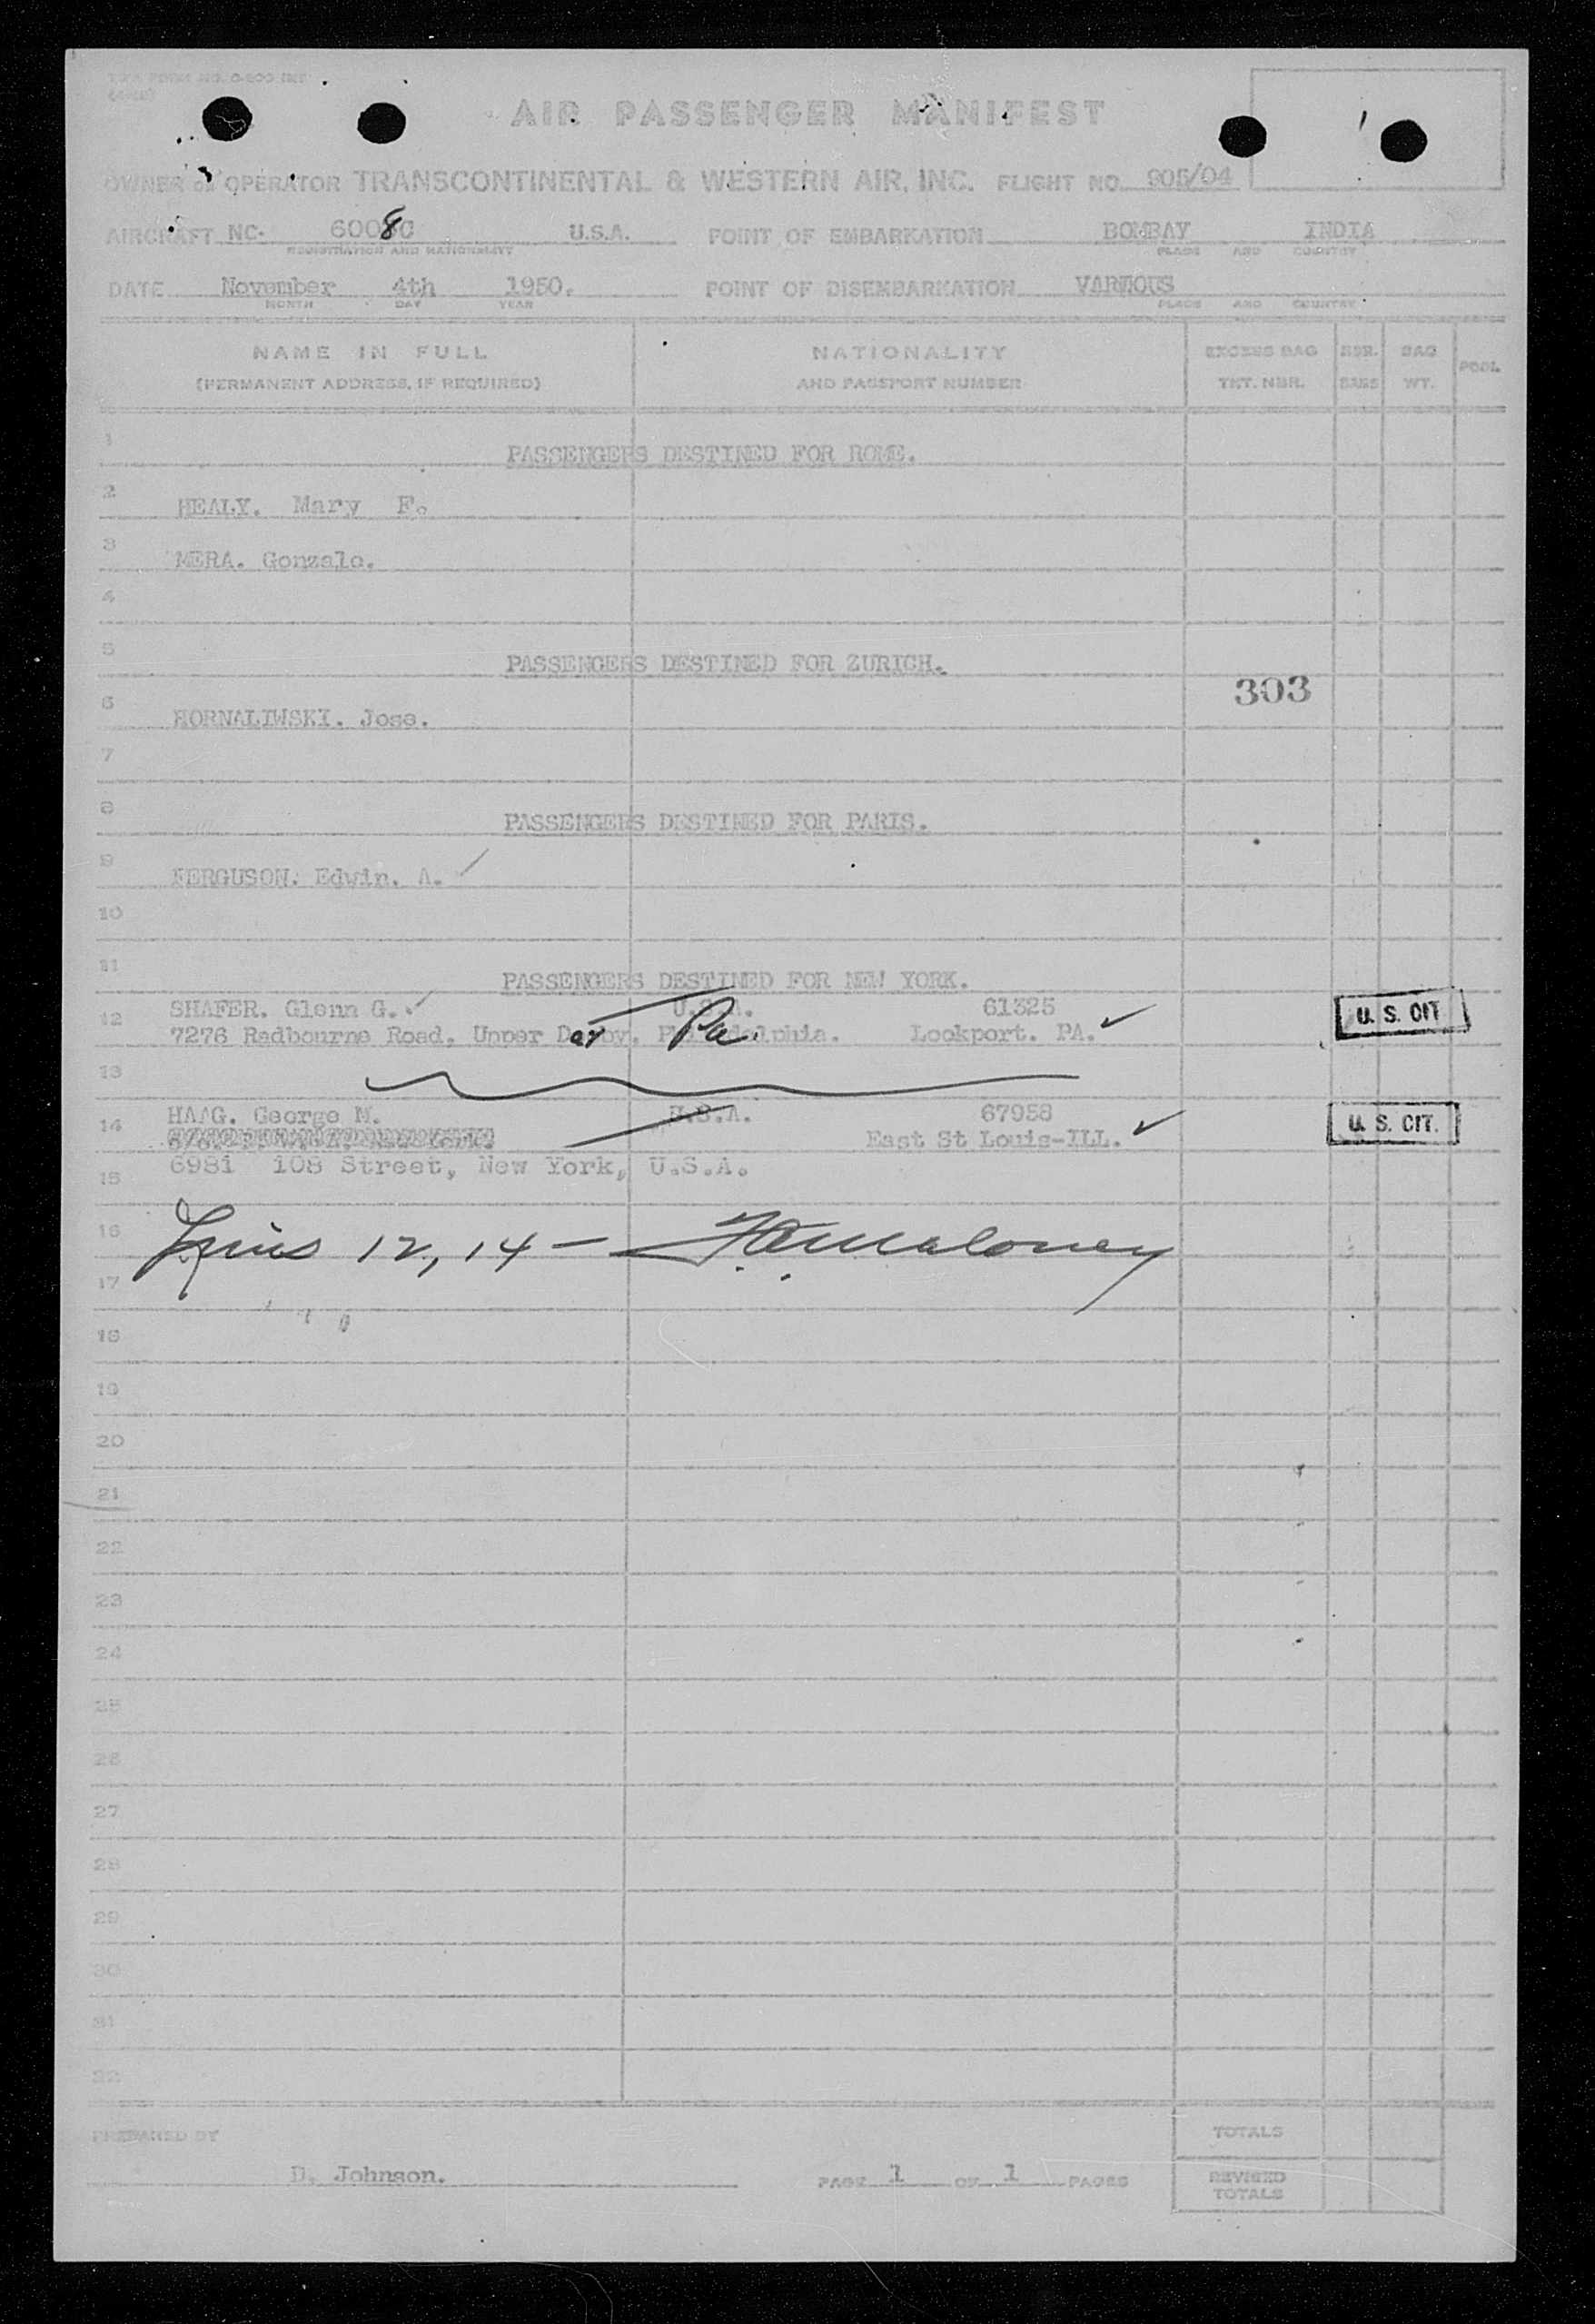 AIR PASSENGER MANIFEST
OWNER or OPERATOR TRANSCONTINENTAL & WESTERN AIR, INC. FLIGHT NO. 905/04
AIRCRAFT NC- 6008C U.S.A. POINT OF EMBARKATION BOMBAY INDIA
REGISTRATION AND NATIONALITY PLACE AND COUNTRY
DATE November 4th 1950. POINT OF DISEMBARKATION VARIOUS
MONTH DAY YEAR PLACE AND COUNTRY
NAME IN FULL NATIONALITY EXCESS BAG NBR. BAG POOL
(PERMANENT ADDRESS, IF REQUIRED) AND PASSPORT NUMBER TKT. NBR. BAGS WT.
1 PASSENGERS DESTINED FOR ROME.
2 HEALY. Mary F.
3 MERA. Gonzalo.
4
5 PASSENGERS DESTINED FOR ZURICH.
303
6 HORNALIWSKI. Jose.
7
8 PASSENGERS DESTINED FOR PARIS.
9 FERGUSON. Edwin. A.
10
11 PASSENGERS DESTINED FOR NEW YORK.
12 SHAFER. Glenn G. U.S.A. 61325 U. S. CIT
7276 Radbourne Road, Upper Darby, Pa. Lockport. PA.
13
14 HAAG. George M. U.S.A. 67958 U. S. CIT.
East St Louis-ILL.
15 6981 108 Street, New York, U.S.A.
16 12, 14 - Maloney
17
18
19
20
21
22
23
24
25
26
27
28
29
30
31
32
PREPARED BY TOTALS
D. Johnson. PAGE 1 OF 1 PAGES REVISED
TOTALS